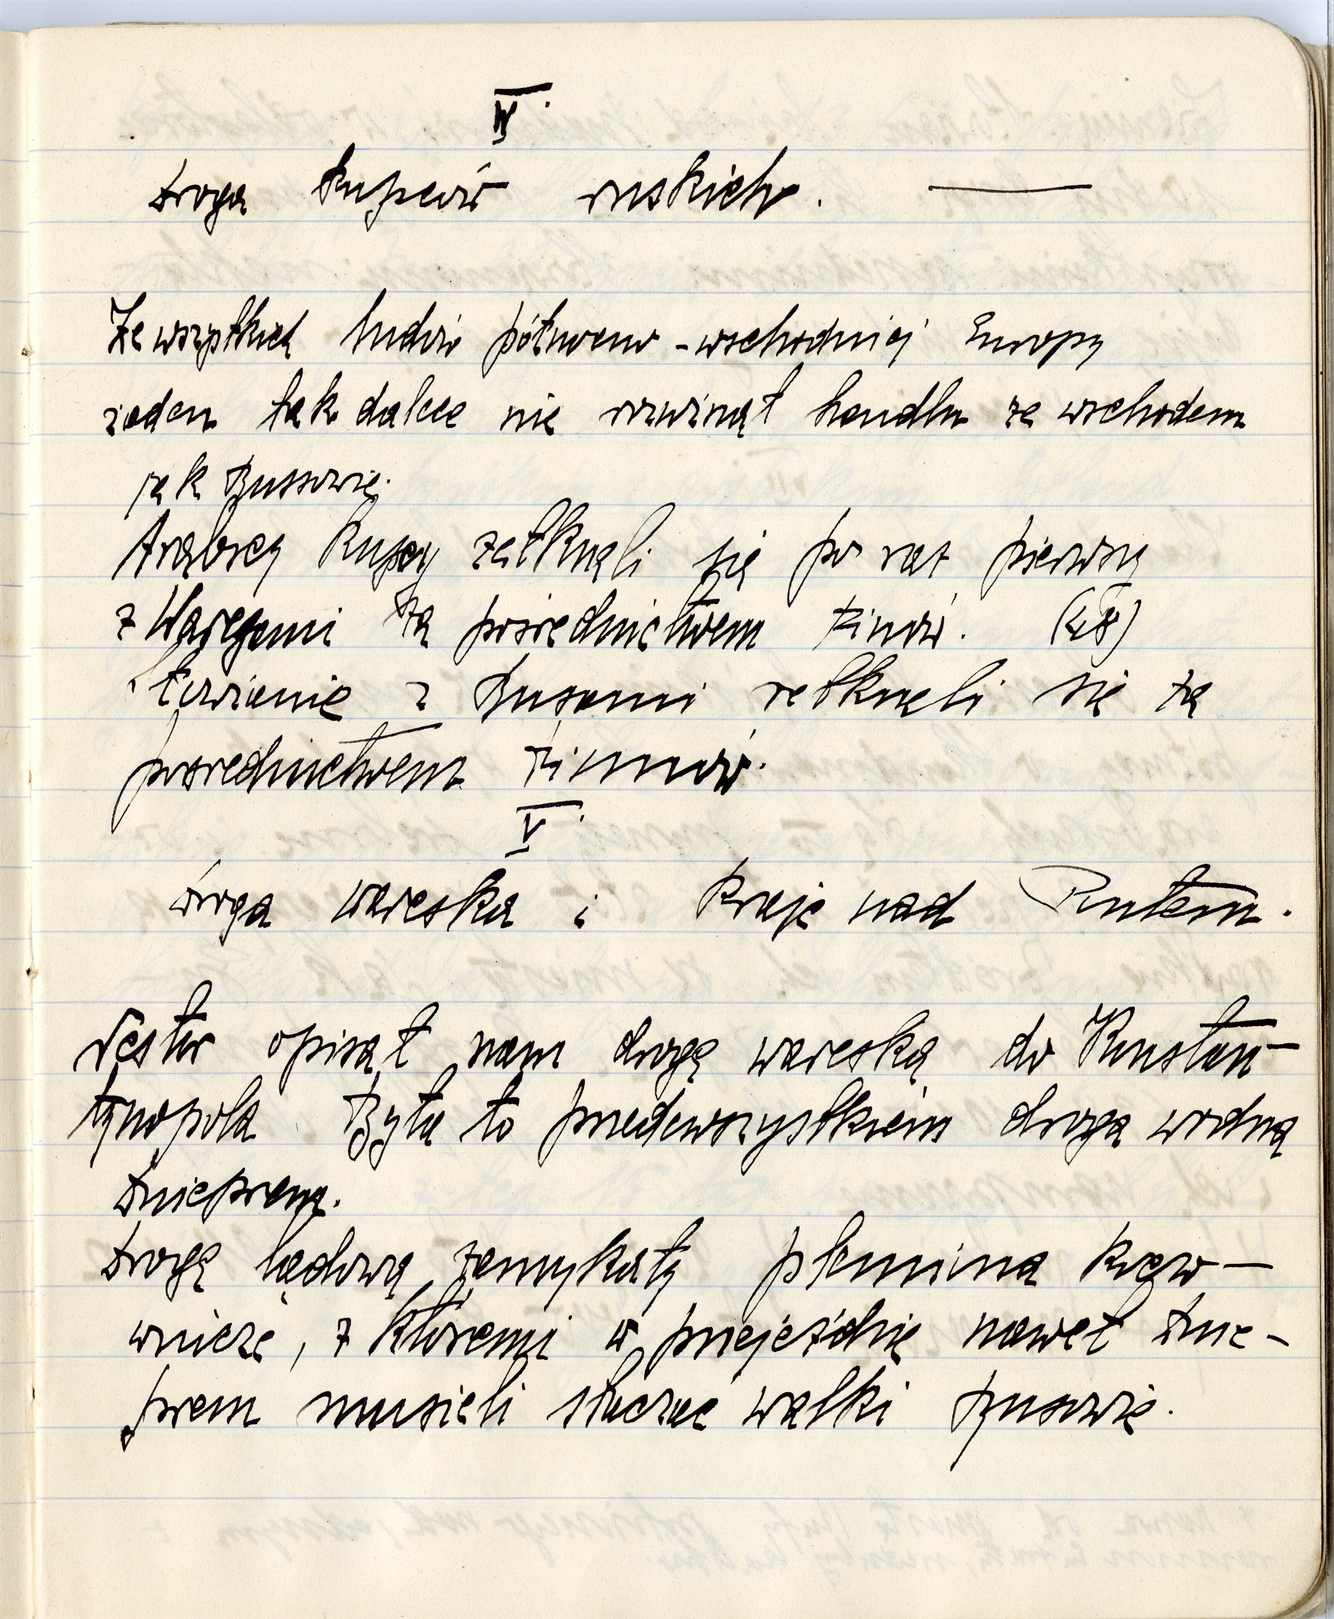 IV.
Droga kupców ruskich.
Ze wszystkich ludów północno-wschodniej Europy
żaden tak dalece nie rozwinął handlu ze wschodem
jak Russowie.
Arabscy kupcy zetknęli się po raz pierwszy
z Waregami za pośrednictwem Finów.
Słowianie z Rusami zetknęli się za
pośrednictwem Finnów.
V.
Droga wareska i kraje nad Pontem.
Nestor opisał nam drogę wareską do Konstan-
tynopola Była to przedewszystkiem droga wodna
Dnieprem.
Drogę lądową zamykały plemiona koczo-
wnicze, z któremi w przejeździe nawet Dnie-
prem musieli staczać walki Rusowie.